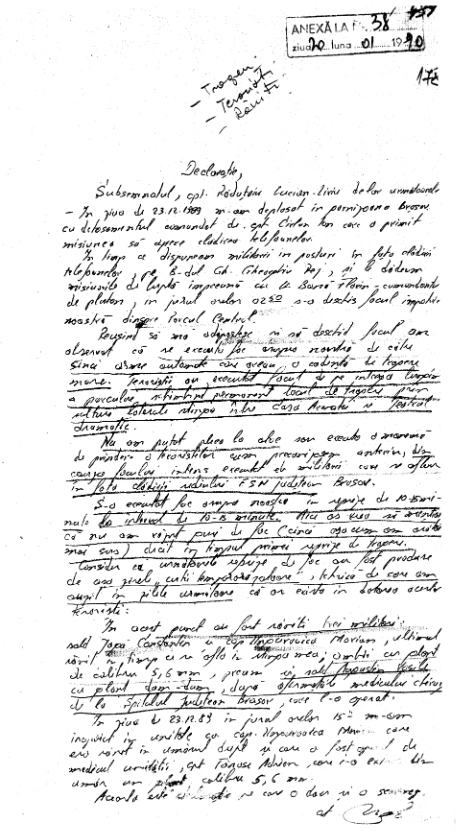 38
ANEXĂ LA
ziua 20 luna 01 19 90
172
- Trageri
- Teroriști
- Răniți
Declarație,
Subsemnatul, cpt. Lucian-Liviu declar următoarele
- În ziua de 23.12.1989 m-am deplasat în garnizoana Brașov
cu detașamentul comandat de cpt. Ion care a primit
misiunea să apere clădirea telefoanelor.
În timp ce dispuneam militarii în posturi în fața clădirii
telefoanelor, pe B-dul Gh. Gheorghiu Dej, și le dădeam
misiunile de luptă împreună cu Florin - comandantu
de pluton, în jurul orelor 02 s-a deschis focul împotriva
noastră dinspre Parcul Central.
Reușind să mă adăpostesc și să deschid focul am
observat că se executa foc asupra noastră de către
cinci arme automate care aveau o cadență de tragere
mare. Teroriștii au executat focul de pe întreaga lungime
a parcului, schimbînd permanent locul de tragere prin
laterale stînga între Casa Armatei și Teatrul
dramatic.
Nu am putut pleca la atac sau executa o manevră
de prindere a teroriștilor cum preconizam anterior, din
cauza focului intens executat de militarii care se aflau
în fața clădirii sediului FSN județean Brașov.
S-a executat foc asupra noastră în reprize de 10-15 mi-
nute la interval de 10-15 minute.
că nu am văzut guri de foc (cinci așa cum am arătat
mai sus) decît în timpul primei reprize de tragere.
Consider că următoarele reprize de foc au fost produse
de așa zisele cutii, tehnică de care am
auzit în zilele următoare că ar exista în dotarea acestor
teroriști.
În acest punct au fost răniți trei militari:
sold. Constantin și cap. Marian, ultimul
rănit în timp ce se afla în stînga mea, ambii cu plont
de calibru 5,6 mm, precum și sold. Vasile
cu plont dum-dum, după afirmațiile medicului chirurg
de la Spitalul Județean Brașov, care l-a operat.
În ziua de 23.12.89 în jurul orelor 15 m-am
înapoiat în unitate cu cap. care
era rănit în umărul drept și care a fost operat de
medicul unității, cpt. Tănase Adrian, care i-a extras din
umăr un plont calibru 5,6 mm.
Aceasta este declarația pe care o dau și o semnez.
cpt